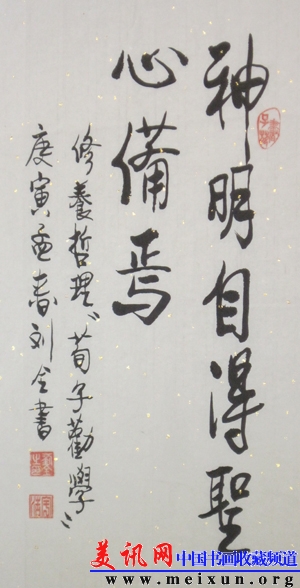 神明自得聖
心備焉
修養哲理〝荀子勸學〞
庚寅孟春刘全書
美讯网 中国书画收藏频道
www.meixun.org